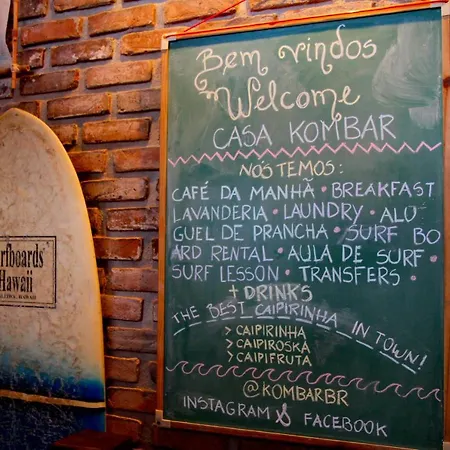 Bem vindos
Welcome
CASA KOMBAR
NÓS TEMOS:
CAFÉ DA MANHÃ • BREAKFAST
LAVANDERIA • LAUNDRY • ALU
GUEL DE PRANCHA • SURF BO
ARD RENTAL • AULA DE SURF •
SURF LESSON • TRANSFERS •
+ DRINKS
THE BEST CAIPIRINHA IN TOWN!
> CAIPIRINHA
> CAIPIROSKA
> CAIPIFRUTA
@KOMBARBR
INSTAGRAM & FACEBOOK
rfboards
Hawaii